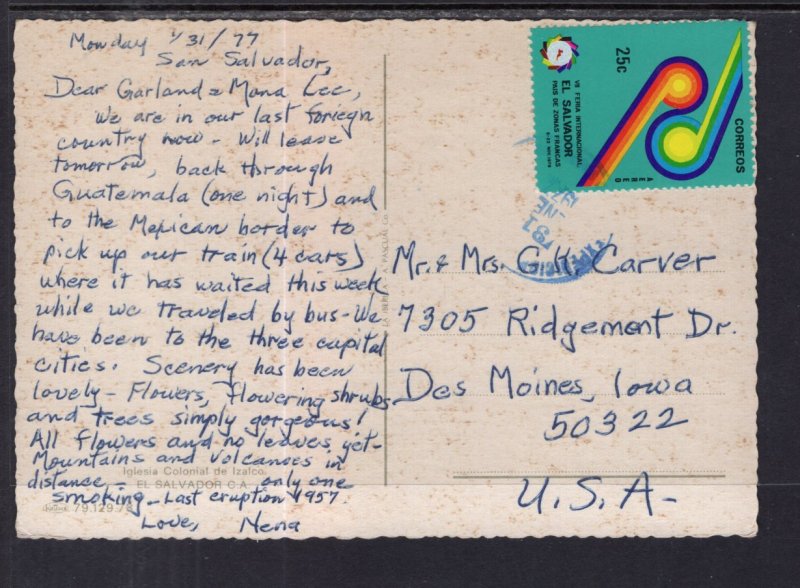 Monday 1/31/77
San Salvador,
Dear Garland & Mona Lee,
We are in our last foriegn
country now - Will leave
tomorrow, back through
Guatemala (one night) and
to the Mexican border to
pick up our train (4 cars)
where it has waited this week
while we traveled by bus - We
have been to the three capital
cities. Scenery has been
lovely - Flowers, flowering shrubs
and trees simply gorgeous!
All flowers and no leaves yet -
Mountains and volcanoes in
distance, - only one
smoking - Last eruption 1957.
Love, Nena
Iglesia Colonial de Izalco.
EL SALVADOR C.A.
79.129.78
A. PASCUAL
25c
VII FERIA INTERNACIONAL
EL SALVADOR
PAIS DE ZONAS FRANCAS
AEREO
CORREOS
Mr. & Mrs. G.K. Carver
7305 Ridgemont Dr.
Des Moines, Iowa
50322
U.S.A-